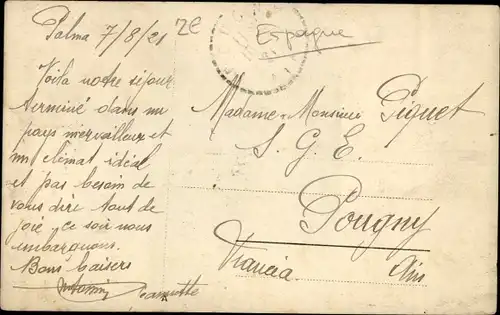 Palma 7/8/21
2E
Espagne
Voila notre séjour
terminé dans un
pays merveilleux et
un climat idéal
et pas besoin de
vous dire tout de
joie ce soir nous
embarquons.
Bons baisers
Madame. Monsieur Piguet
S. G. E.
Pougny
Francia Ain